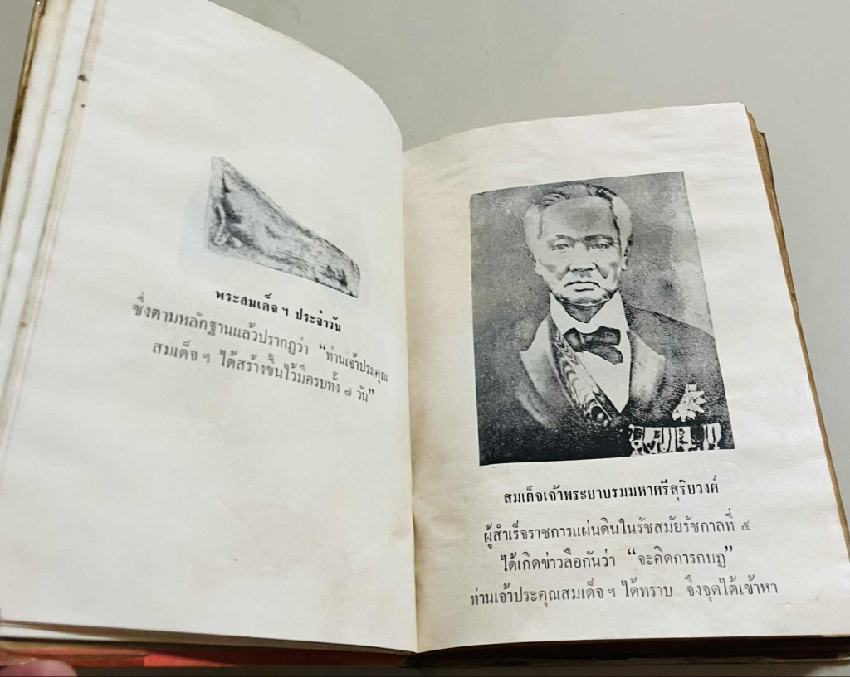 พระสมเด็จ ฯ ประจำวัน
ซึ่งตามหลักฐานแล้วปรากฏว่า “ท่านเจ้าประคุณ
สมเด็จ ฯ ได้สร้างขึ้นไว้มีครบทั้ง ๗ วัน”
สมเด็จเจ้าพระยาบรมมหาศรีสุริยวงศ์
ผู้สำเร็จราชการแผ่นดินในรัชสมัยรัชกาลที่ ๕
ได้เกิดข่าวลือกันว่า “จะคิดการกบฏ”
ท่านเจ้าประคุณสมเด็จ ฯ ได้ทราบ จึงจุดไต้เข้าหา